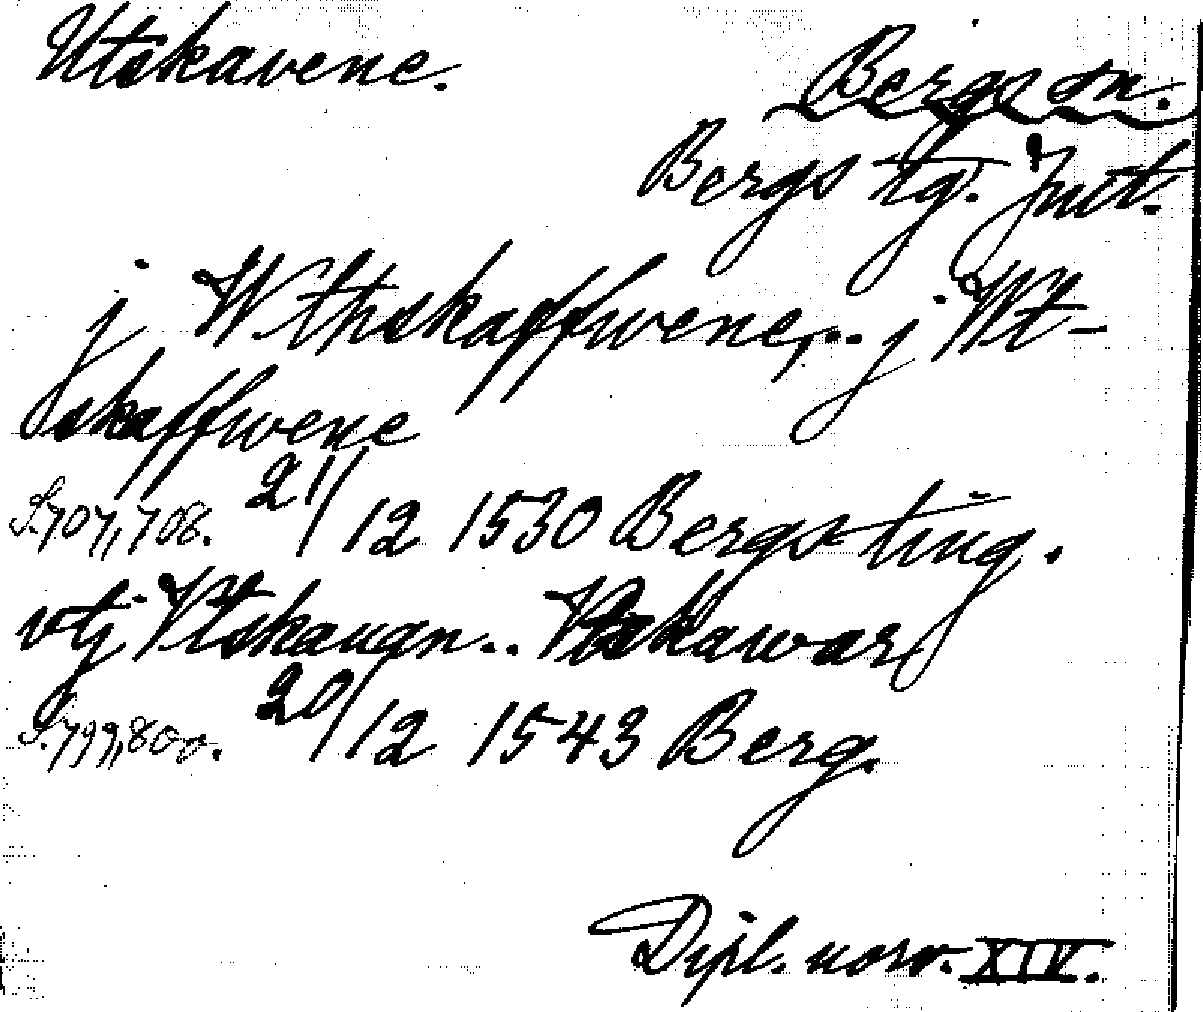 Utskavene.
Bergs sn.
Bergs tg. Juit.
j Wthskaffwene,.. j Wt-
skaffwene
S.707,708. 21/12 1530 Bergs ting.
vtj Vtskaugn.. Vtskawar
S.799,800. 20/12 1543 Berg.
Dipl. norv. XIV.